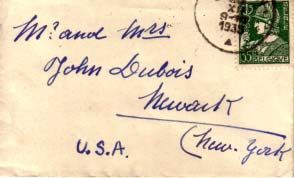 XI
9-
193
BELGIQUE
Mr and Mrs
John Dubois
Newark
(New. York
U.S.A.